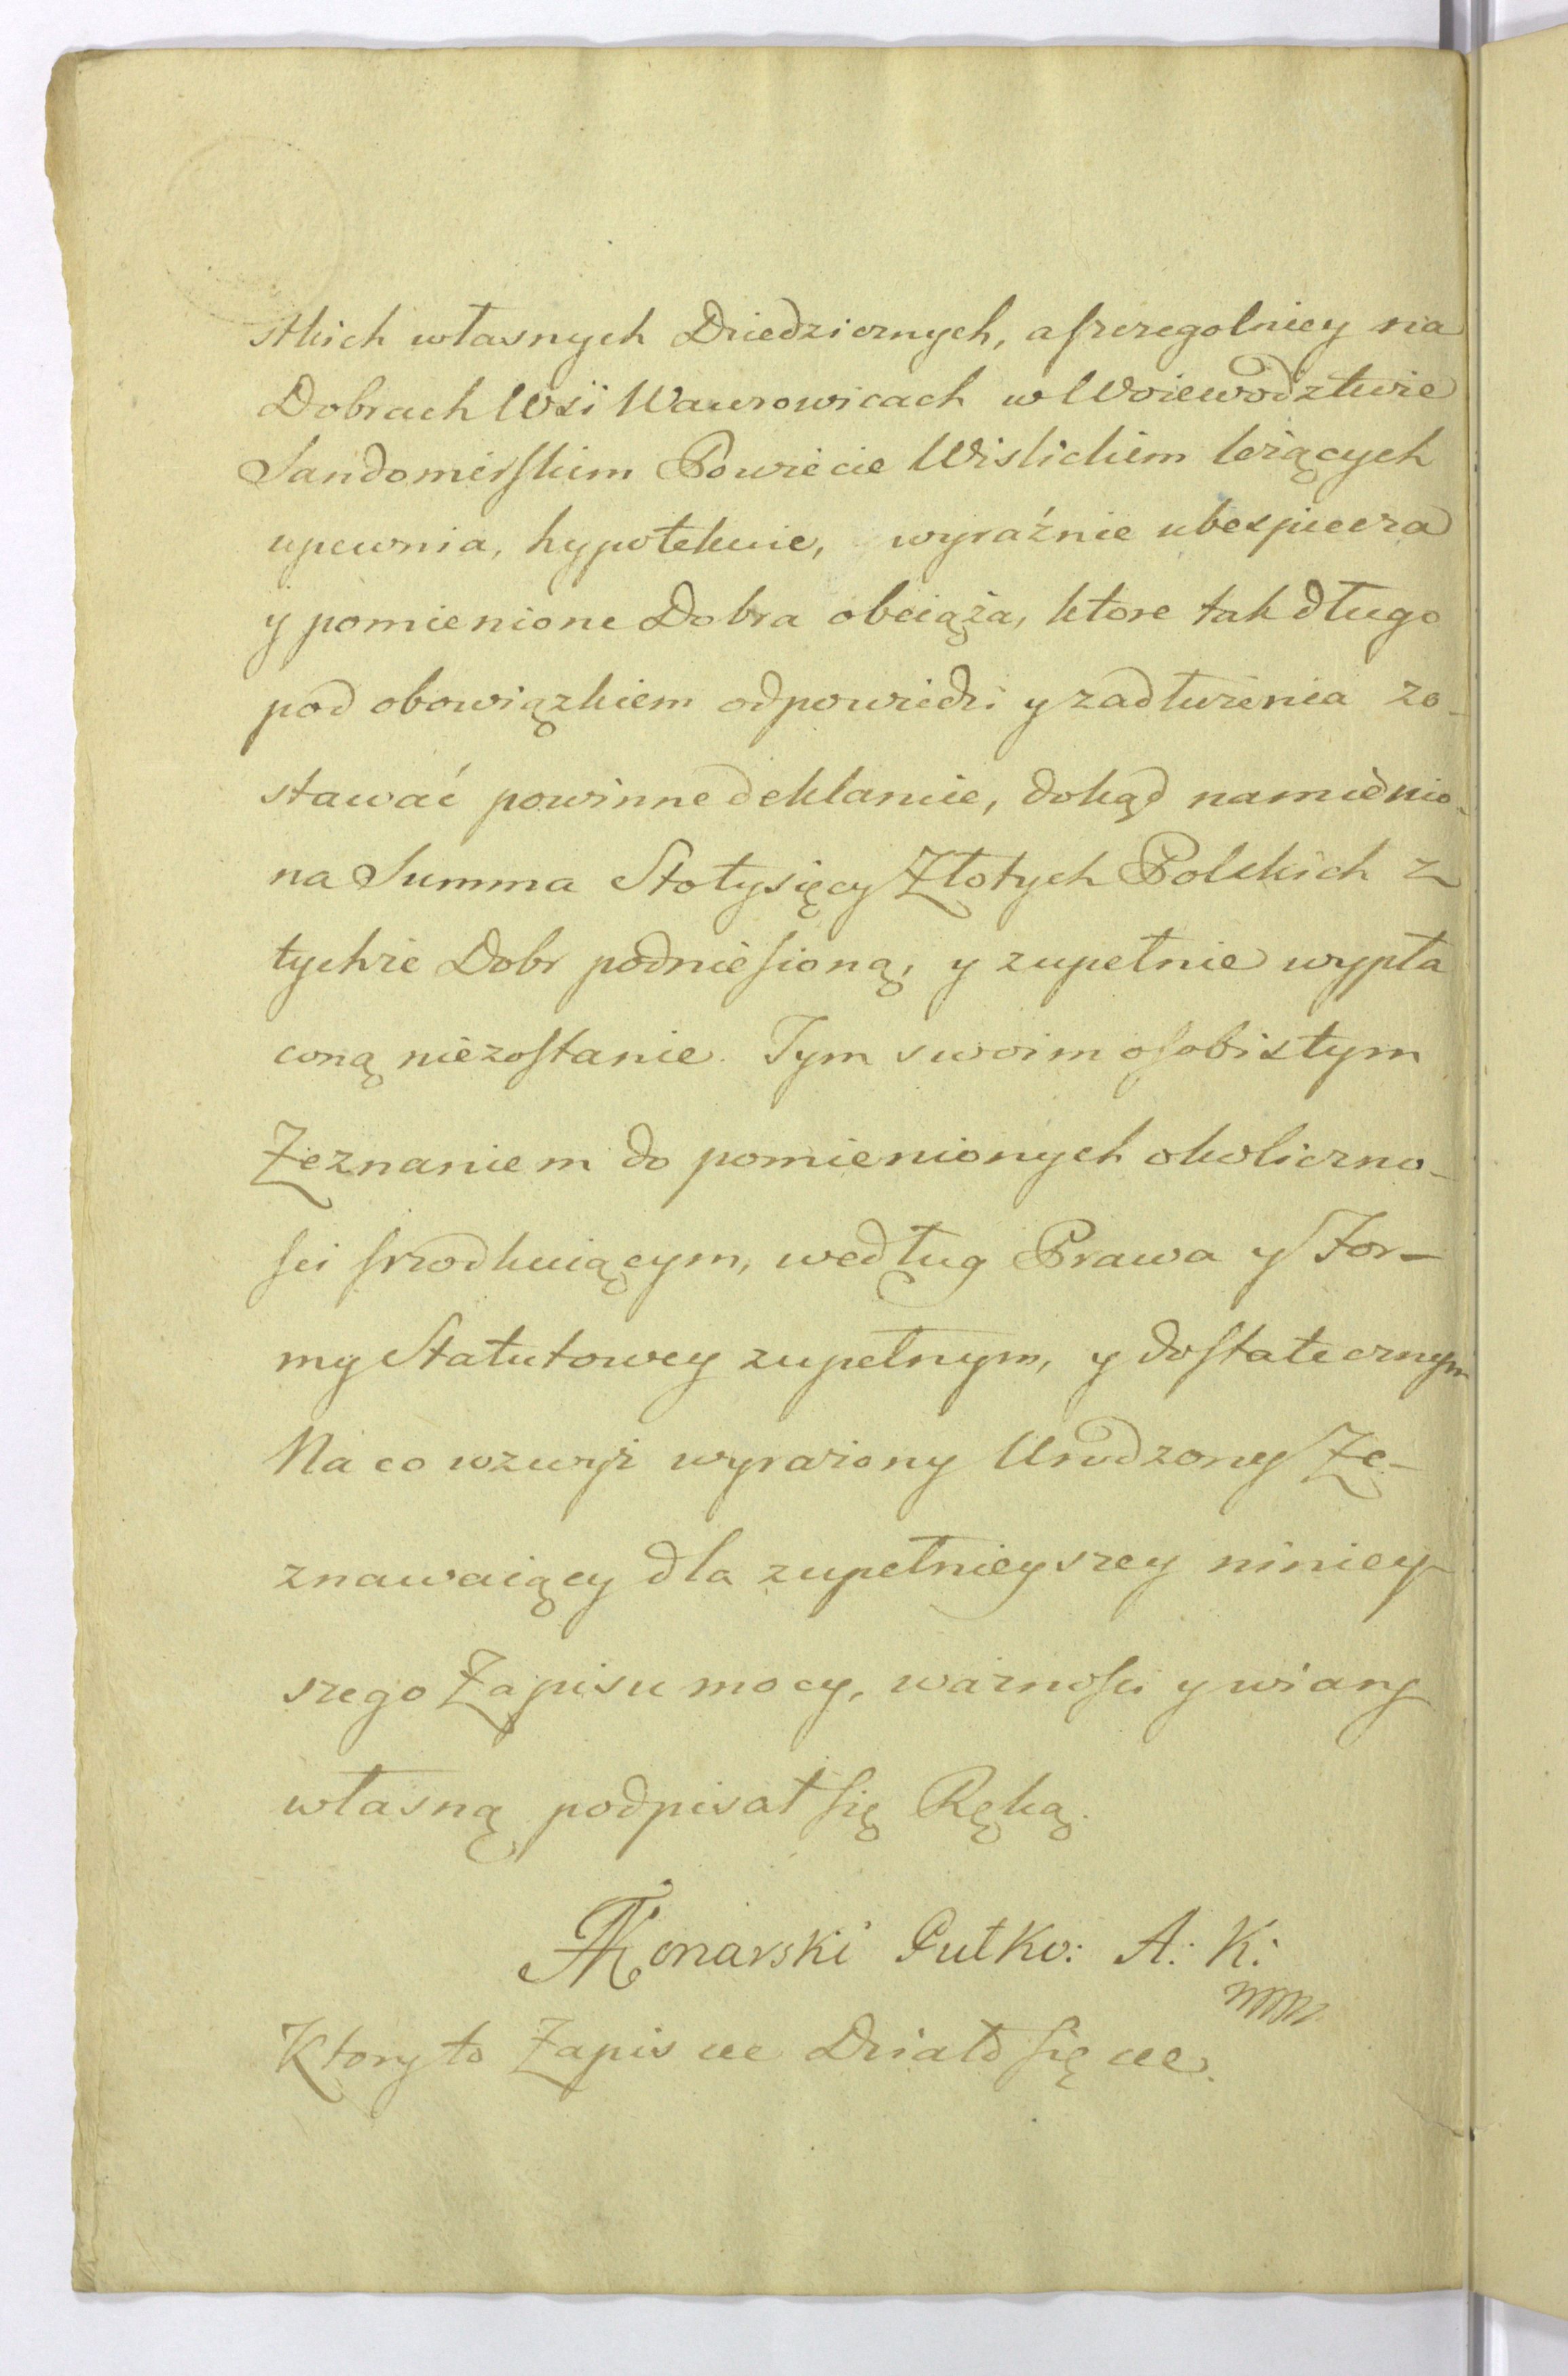 stkich własnych Dziedzicznych, aſzczegolniey na
Dobrach Wsi Wawrowicach w Woiewodztwie
Sandomirſkim Powiecie Wislickiem leżących
upewnia, hypotekuie, wyraźnie ubespiecza
y pomienione Dobra obciąża, ktore tak długo
pod obowiązkiem odpowiedzi y zadłużenia zo-
stawać powinne deklaruie, dokąd namienio-
na Summa Stotysięcy Złotych Polskich z
tychże Dobr podnieſioną, y zupełnie wypła
coną niezoſtanie. Tym swoim oſobistym
Zeznaniem do pomienionych okoliczno-
ſci ſrzodkuiącym, według Prawa y For-
my Statutowey zupełnym, y doſtatecznym
Na co wzwyż wyrażony Urodzony Ze-
znawaiący dla zupełnieyszey niniey
szego Zapisu mocy, ważnoſci y wiary
własną podpisał ſię Ręką.
Konarski Gutko: A: K:
mm
Ktory to Zapis ec Działo ſię ec.